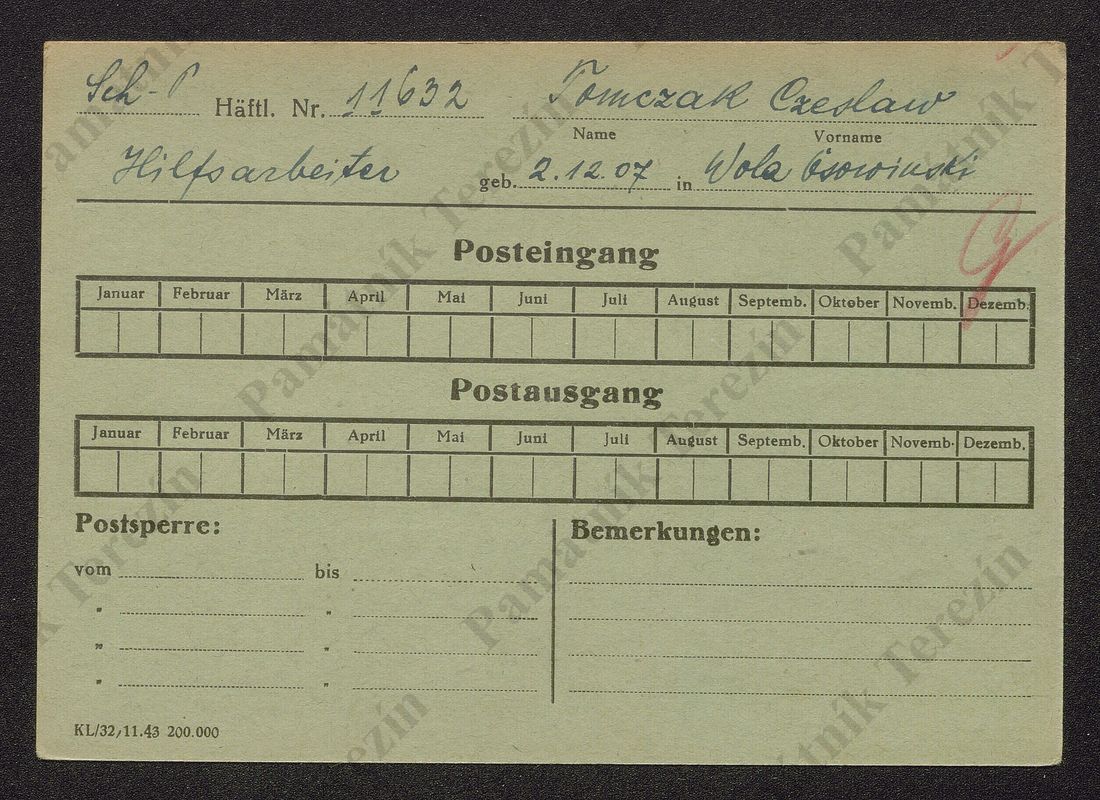 Sch-P Häftl. Nr. 11632 Tomczak Czeslaw
Name Vorname
Hilfsarbeiter geb. 2.12.07 in Wola Osowinski
Posteingang
Januar Februar März April Mai Juni Juli August Septemb. Oktober Novemb. Dezemb.
Postausgang
Januar Februar März April Mai Juni Juli August Septemb. Oktober Novemb. Dezemb.
Postsperre: Bemerkungen:
vom bis
" "
" "
" "
KL/32/11.43 200.000
Památník Terezín